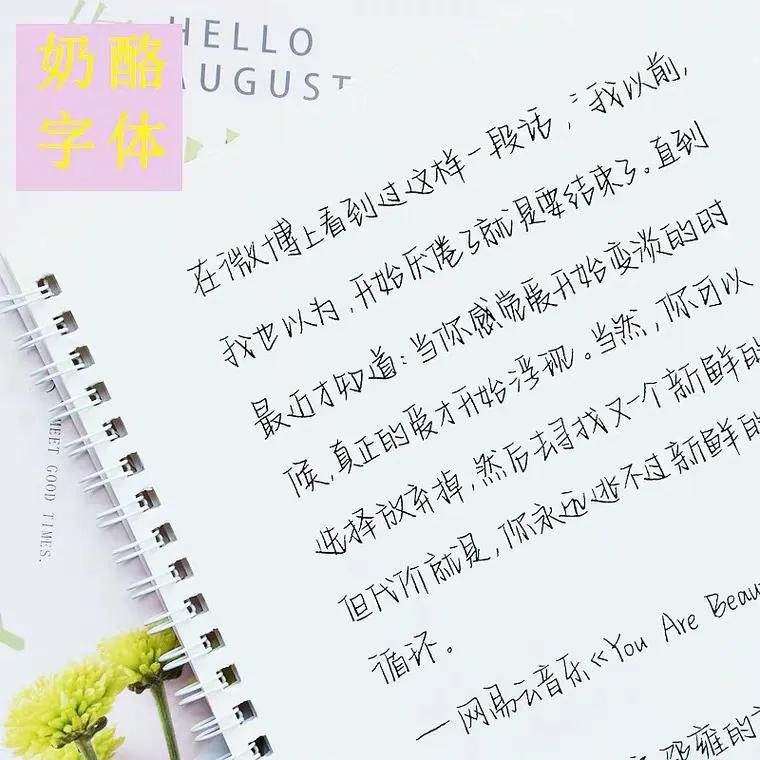 奶酪
字体
HELLO
AUGUST
在微博上看到过这样一段话,:我以前,
我也以为,开始厌倦了就是要结束了。直到
最近才知道:当你感觉爱开始变淡的时
候,真正的爱才开始浮现。当然,你可以
选择放弃掉,然后去寻找又一个新鲜的
但代价就是,你永远逃不过新鲜的
循环。
—网易云音乐《You Are Beau
雍的
MEET GOOD TIMES.